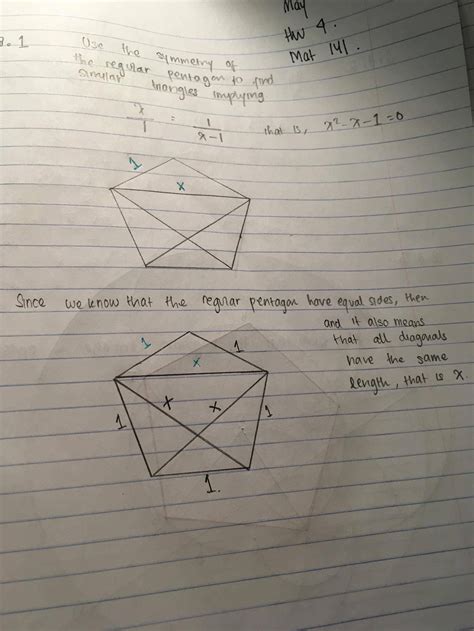 May
HW 4.
Mat 141.
3.1 Use the symmetry of
the regular pentagon to find
similar triangles implying
x/1 = 1/x-1 that is, x²-x-1=0
1
x
Since we know that the regular pentagon have equal sides, then
and it also means
that all diagonals
have the same
length, that is x.
1 1
x
x x
1 1
1.